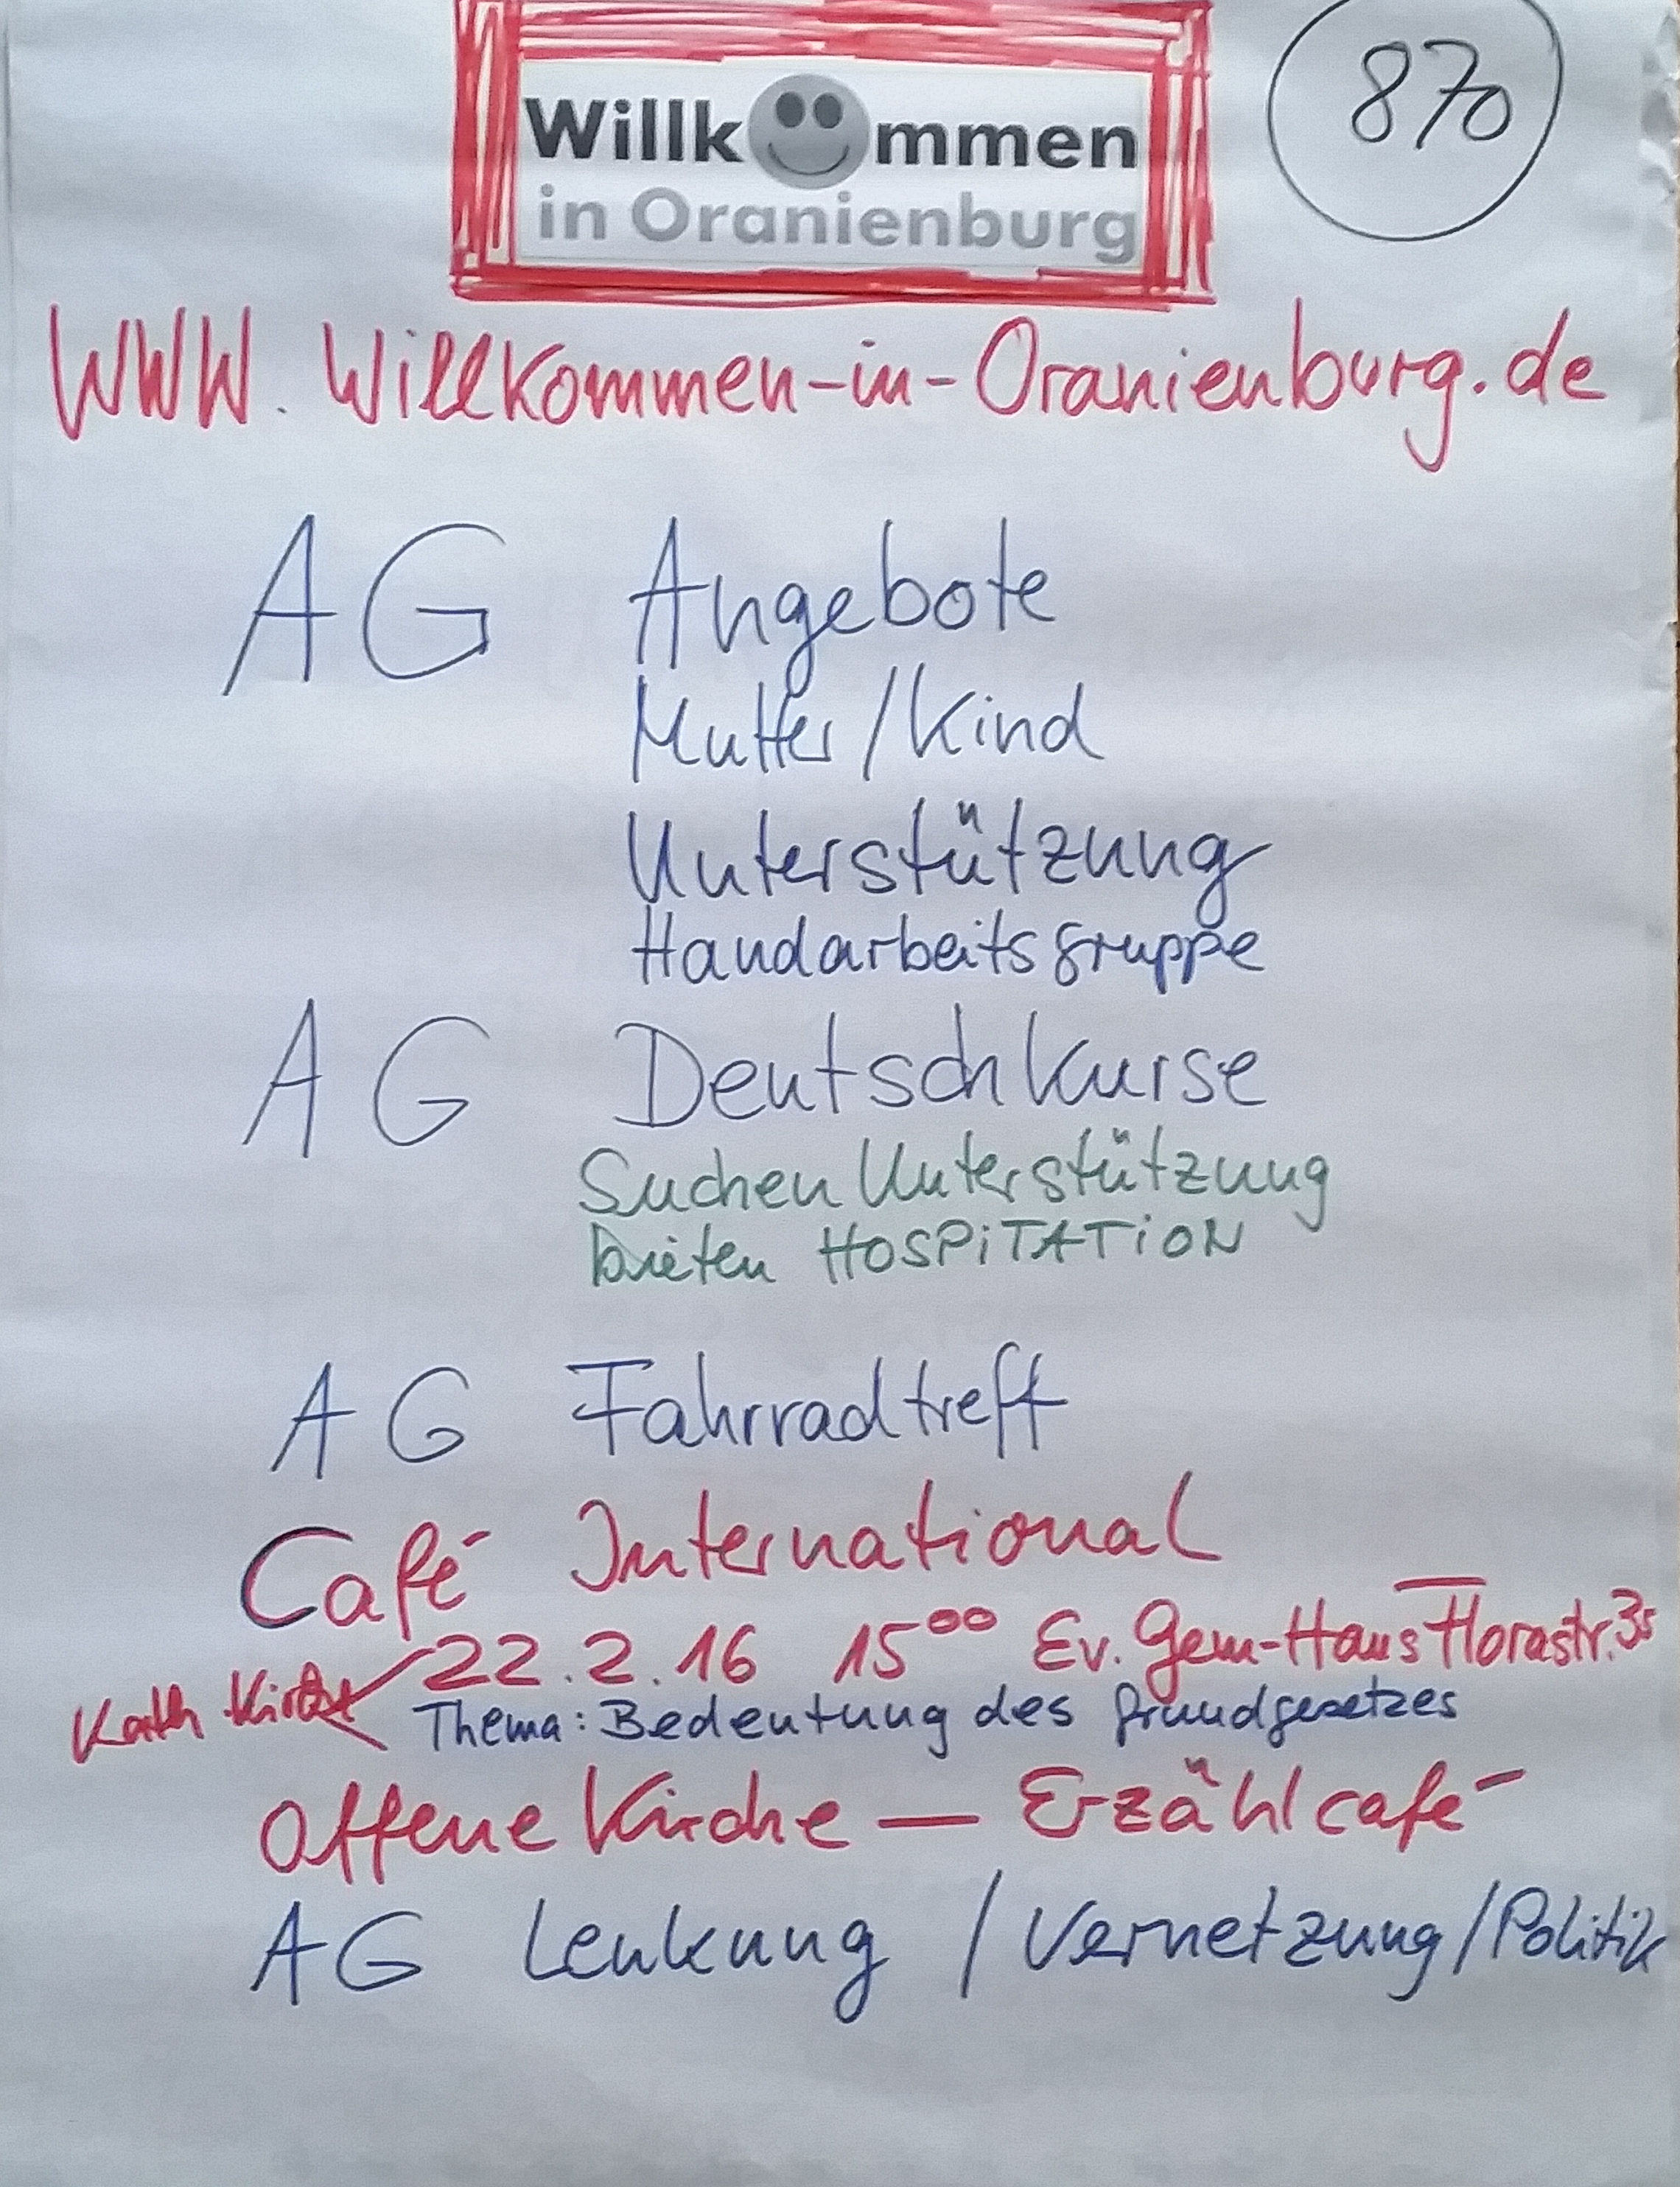 Willkommen
in Oranienburg
870
WWW.Willkommen-in-Oranienburg.de
AG Angebote
Mutter/Kind
Unterstützung
Handarbeitsgruppe
AG Deutschkurse
Suchen Unterstützung
bieten HOSPiTATiON
AG Fahrradtreff
Café International
22.2.16 15⁰⁰ Ev. Gem-Haus Florastr. 35
Kath Kirche
Thema: Bedeutung des Grundgesetzes
Offene Kirche — Erzählcafé
AG Lenkung / Vernetzung / Politik